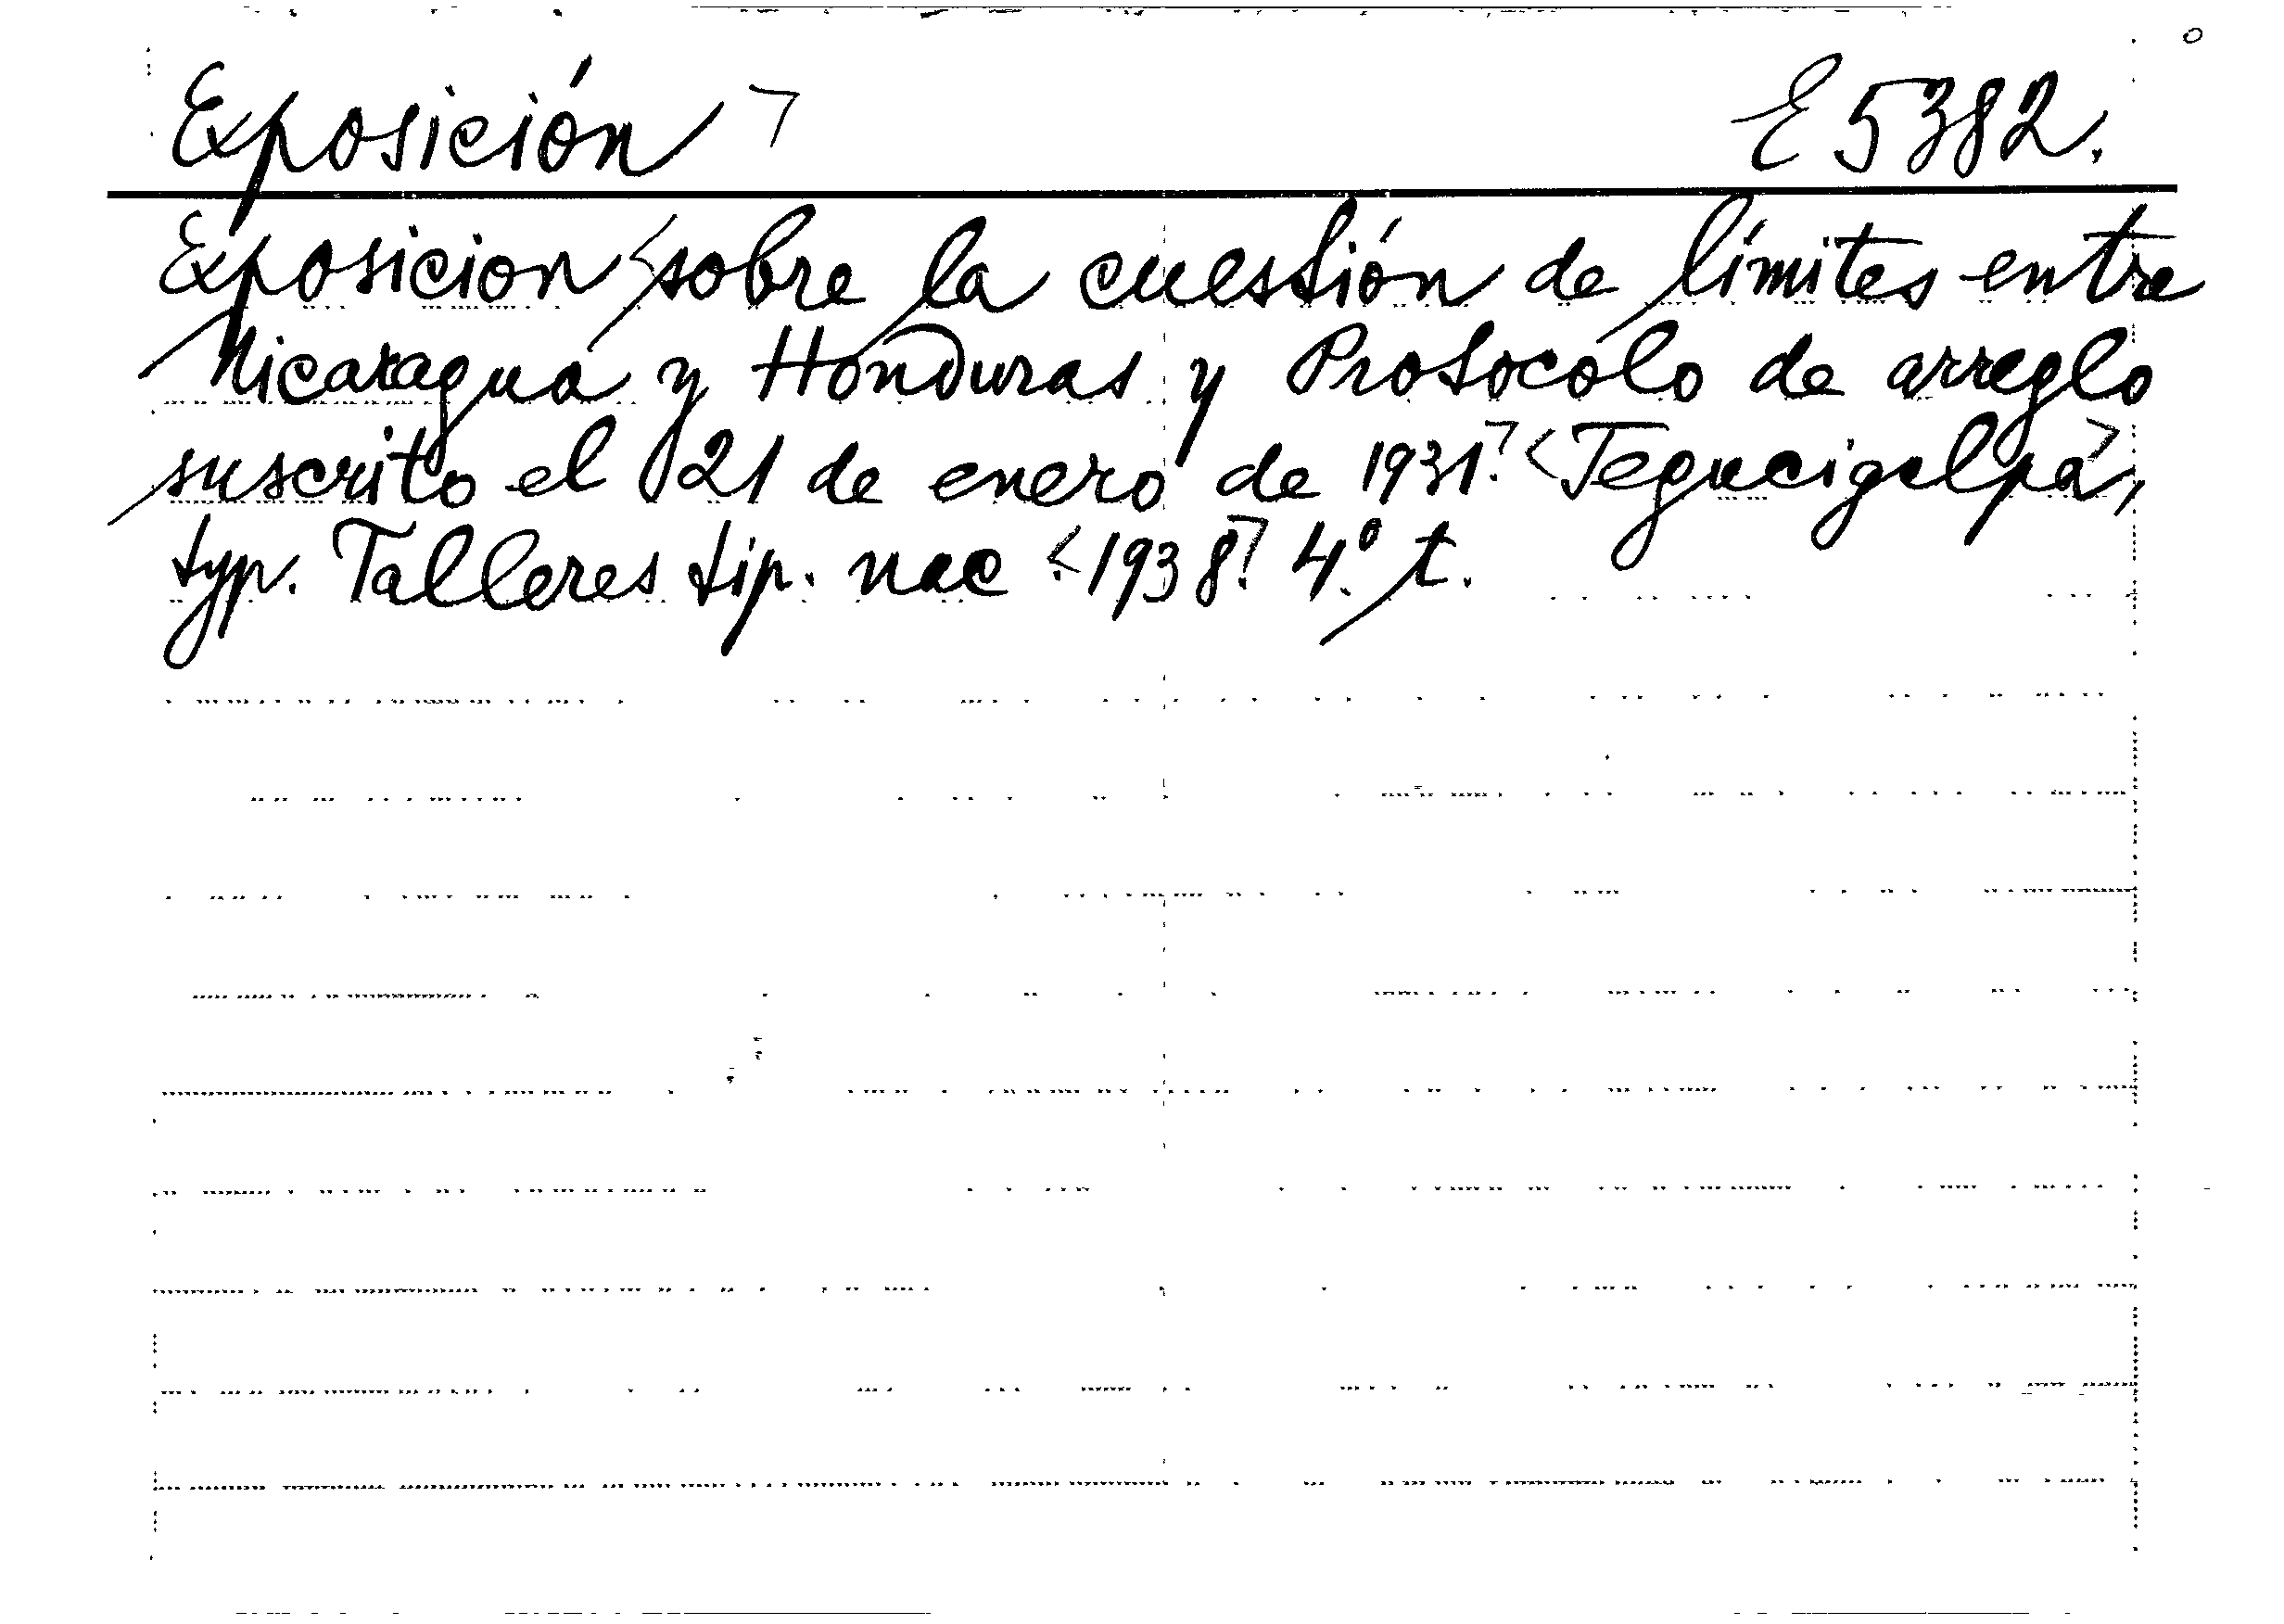 Exposición E 5382.
Exposicion sobre la cuestión de límites entre
Nicaragua y Honduras y Protocolo de arreglo
suscrito el 21 de enero de 1931. Tegucigalpa,
typ. Talleres tip. nac. 1938. 4.º t.